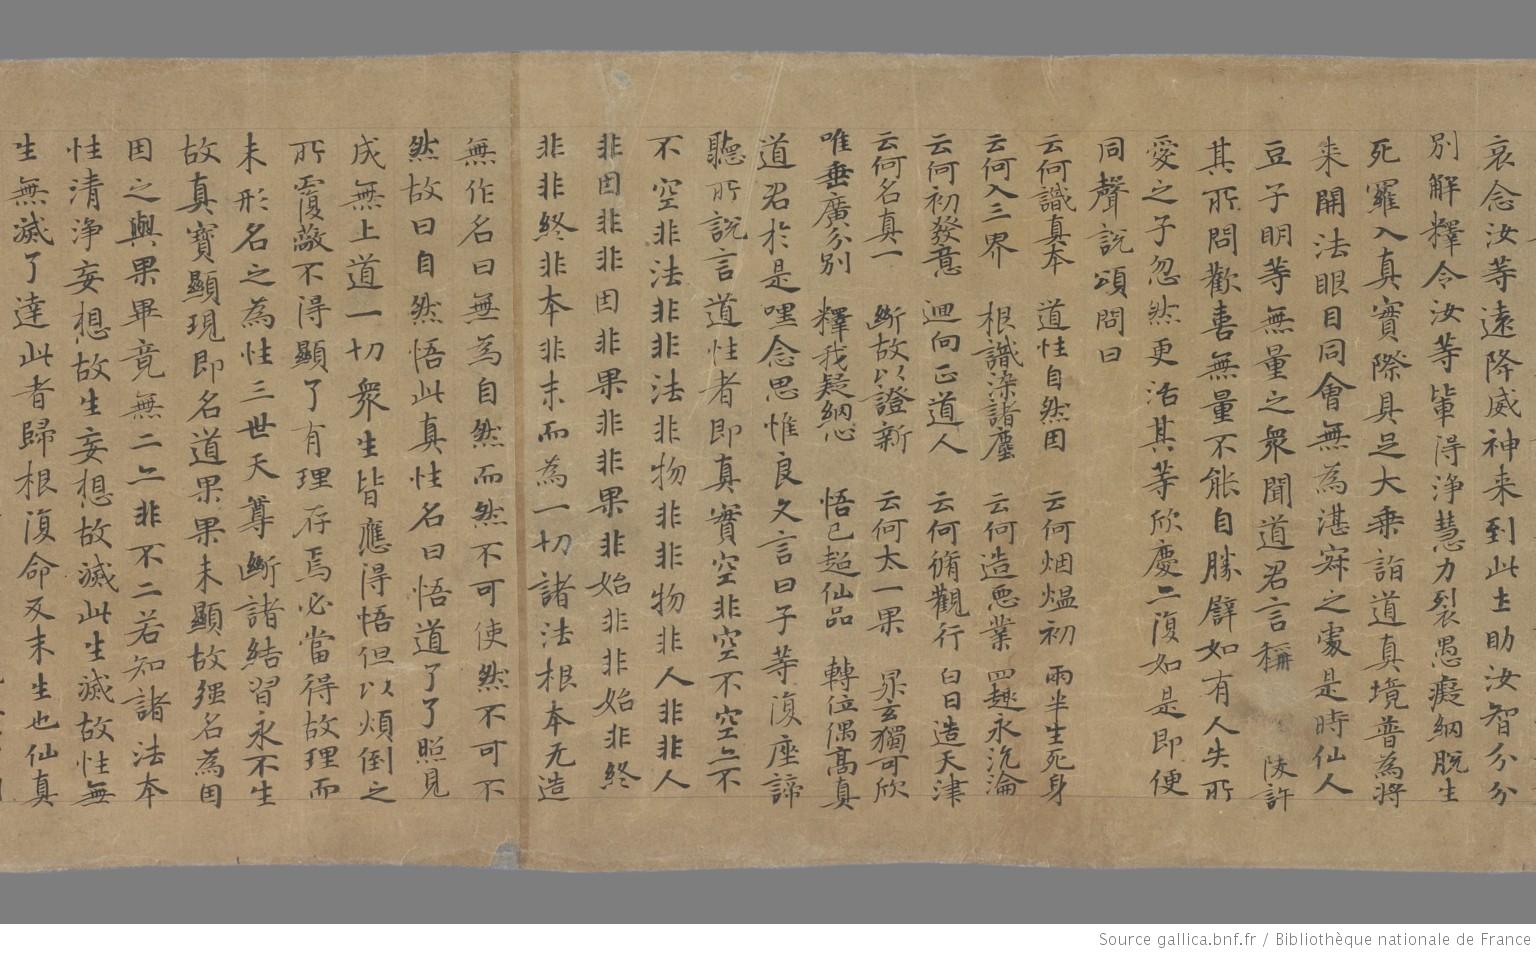 哀念汝等遠降威神来到此土助汝智分分
別解釋令汝等軰得浄慧力裂愚癡網脫生
死羅入真實際具足大乘詣道真境普為將
来開法眼目同會無為湛寂之處是時仙人
豆子明等無量之衆聞道君言稱 陵許
其所問歡喜無量不能自勝譬如有人失所
愛之子忽然更活其等欣慶二復如是即便
同聲說頌問曰
云何識真本 道性自然因 云何烟熅初 兩半生死身
云何入三界 根識染諸塵 云何造惡業 四趣永沉淪
云何初發意 迴向正道人 云何脩觀行 白日造天津
云何名真一 斷故以證新 云何太一果 玄獨可欣
唯垂廣分別 釋我疑網心 悟已超仙品 轉位偶高真
道君於是嘿念思惟良久言曰子等復座諦
聽所說言道性者即真實空非空不空亦不
不空非法非非法非物非非物非人非非人
非因非非因非果非非果非始非非始非終
非非終非本非末而為一切諸法根本无造
無作名曰無為自然而然不可使然不可不
然故曰自然悟此真性名曰悟道了了照見
成無上道一切衆生皆應得悟但以煩倒之
所覆蔽不得顯了有理存焉必當得故理而
未形名之為性三世天尊斷諸結習永不生
故真實顯現即名道果果未顯故强名為因
因之與果畢竟無二亦非不二若知諸法本
性清浄妄想故生妄想故滅此生滅故性無
生無滅了達此者歸根復命反未生也仙真